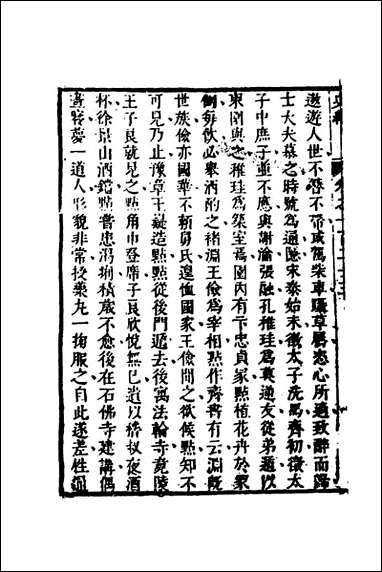 遨遊人世不簪不帶或駕柴車躡草屩恣心所適致醉而歸
士大夫慕之時號為通隱宋泰始末徵太子洗馬齊初徵太
子中庶子並不應與謝瀹張融孔稚珪為莫逆友從弟遁以
東園與之稚珪為築室焉園內有卞忠貞冢點植花卉於冢
側每飲必舉酒酹之褚淵王儉為宰相點作齊書贊云淵既
世族儉亦國華不賴舅氏遑恤國家王儉聞之欲候點知不
可見乃止豫章王嶷造點點從後門遁去後寓法輪寺竟陵
王子良就見之點角巾登席子良欣悅無已遺以嵇叔夜酒
杯徐景山酒鐺點嘗患渴痢積歲不愈後在石佛寺建講偶
晝寢夢一道人形貌非常授藥丸一掬服之自此遂差性